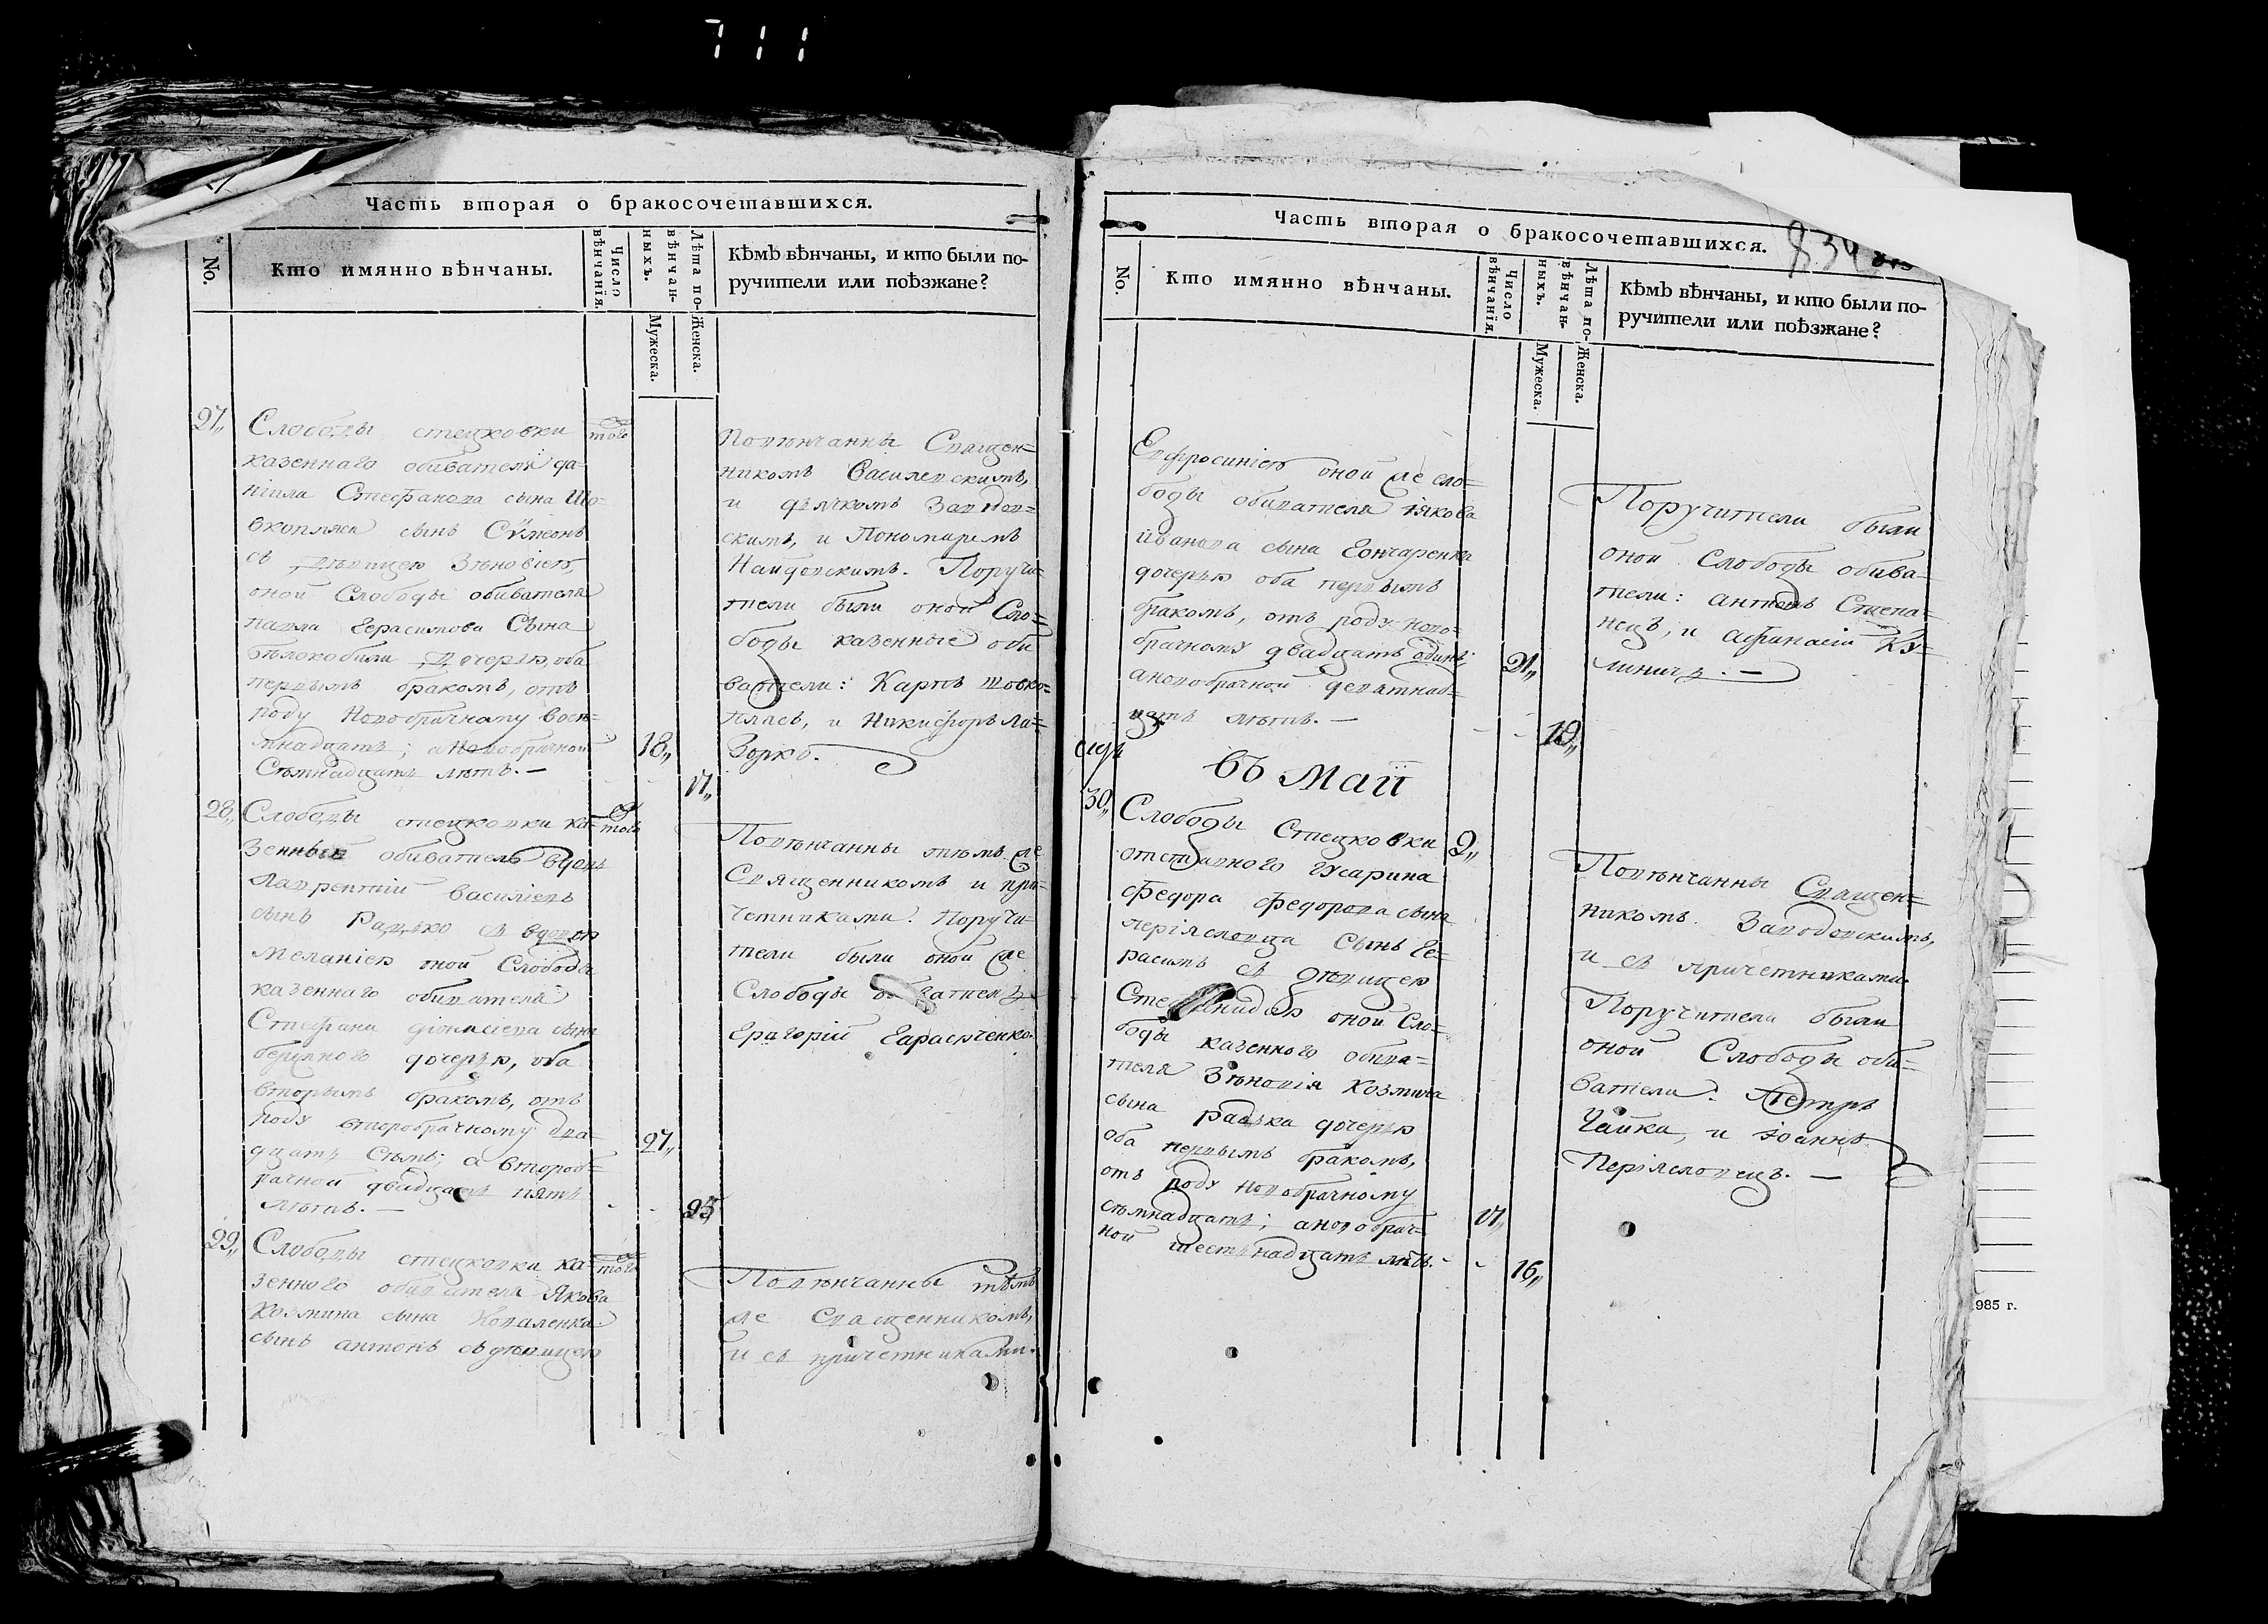 711
Часть вторая о бракосочетавшихся.
No.
Кто имянно вѣнчаны.
Число вѣнчанія.
Лѣта повѣнчанныхъ.
Мужеска.
Женска.
Кѣмъ вѣнчаны, и кто были по-
ручители или поѣзжане?
27,,
Слободы стецковки
того
казеннаго обивателя да-
ніила Стефанова сына Шо-
вкопляса сынъ Сѵмеонъ
съ дѣвицею Зѣновіею,
оной Слободы обивателя
павла Герасимова Сына
бѣлокобили дочерью, оба
первымъ бракомъ, отъ
роду Новобрачному восѣ-
мнадцать; а Новобрачной
18,,
Сѣмнадцать лѣтъ. —
17,,
Повѣнчанны Священ=
никомъ Василевскимъ,
и дячкомъ
скимъ, и Пономаремъ
Найдовскимъ. Поручи-
тели были оной Сло=
боды казенные оби
ватели: Карпъ шовко=
плясъ, и Никифоръ Ла=
Зорко.
28,,
Слободы стецковки ка-
того
зенный обиватель вдовъ
Лаврентій василіевъ
сынъ Радько съ вдовою
меланіею оной Слободы
казеннаго обивателя
Стефана діонисіева сына
дочерью, оба
вторымъ бракомъ, отъ
роду второбрачному два-
27,,
дцать Сѣмъ; а второб=
рачной двадцать пять
лѣтъ. —
25,,
Повѣнчанны тѣмъ же
Священникомъ и при-
четниками. Поручи-
тели были оной же
Слободы обиватель
Григорій Гарасюченко.
29,,
Слободы стецковки ка-
того
зенного обивателя Якова
Козмина сына Коваленка
сынъ антонъ съ дѣвицею
Повѣнчанны тѣмъ
же Священникомъ,
и съ причетниками.
Часть вторая о бракосочетавшихся.
834
No.
Кто имянно вѣнчаны.
Число вѣнчанія.
Лѣта повѣнчанныхъ.
Мужеска.
Женска.
Кѣмъ вѣнчаны, и кто были по-
ручители или поѣзжане?
Ефросиніею оной же сло=
боды обивателя іякова
иванова сына Гончаренка
дочерью оба первымъ
бракомъ, отъ роду ново=
брачному двадцать одинъ;
21,,
а новобрачной девятнад=
цать лѣтъ. —
19,,
Поручители были
оной Слободы обива-
тели: антонъ Степа-
нецъ, и афанасій Ку-
линичъ. —
въ Маіи
30,,
Слободы Стецковки
2,,
отставного гусарина
Федора Федорова сына
періяславца Сынъ Ге=
расимъ съ дѣвицею
Стефанидою оной Сло=
боды казенного обива=
теля Зѣновія Козмича
сына радька дочерью
оба первымъ бракомъ,
отъ роду новобрачному
сѣмнадцать; а новобрач=
17,,
ной шестьнадцать лѣтъ. -
16,,
Повѣнчанны Священ=
никомъ
и съ причетниками
Поручители были
оной Слободы оби=
ватели: Петръ
Чайка, и іоаннъ
Періяславецъ. —
985 г.